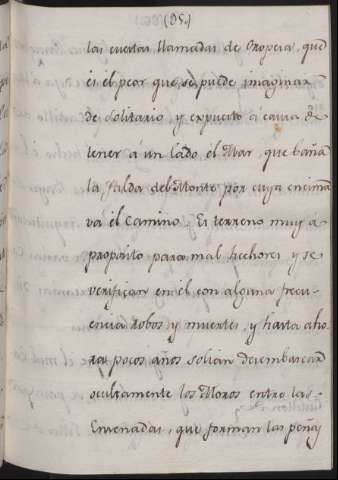 (95.)
las cuestas llamadas de Oropesa, que
es el peor que se puede imaginar
de solitario, y expuesto á causa de
tener á un lado el Mar, que baña
la falda del Monte por cuya encima
vá el Camino. Es terreno muy á
proposito para mal hechores, y se
verifican en él con alguna frecu-
encia robos, y muertes, y hasta aho
ra pocos años solian desembarcar
ocultamente los Moros entre las
Ensenadas, que forman las peñas